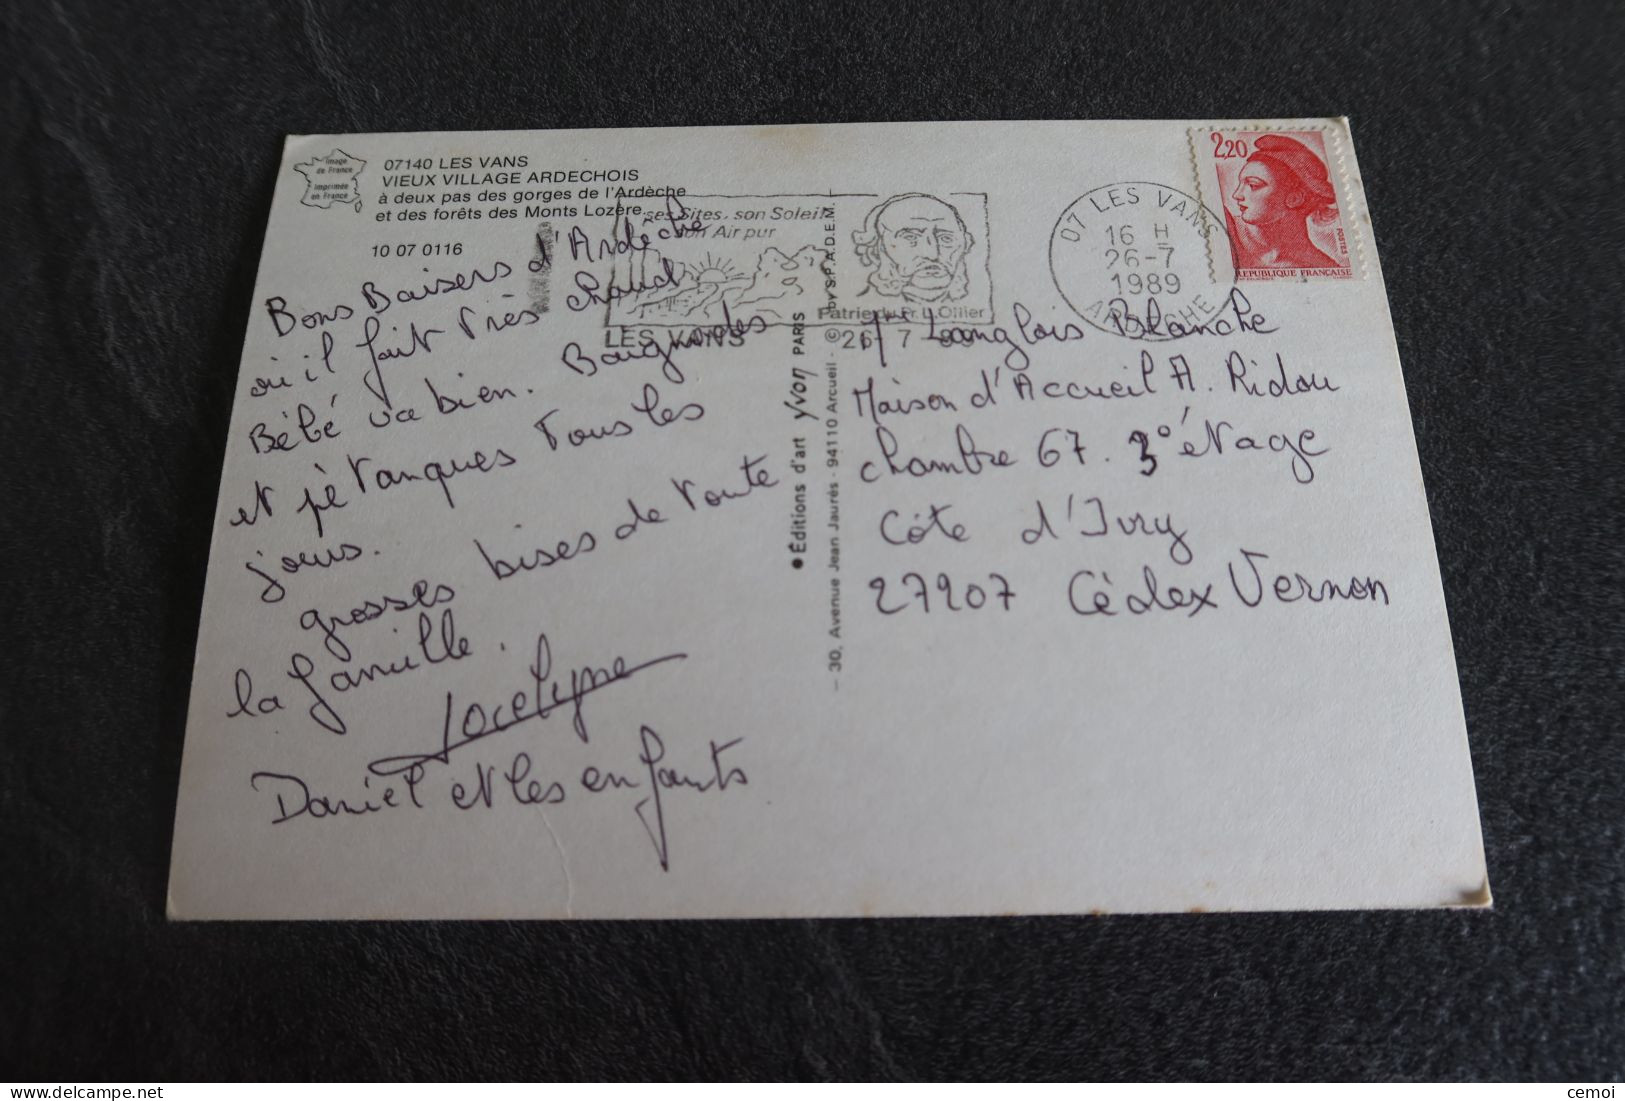 Image
de France
Imprimée
en France
07140 LES VANS
VIEUX VILLAGE ARDECHOIS
à deux pas des gorges de l'Ardèche
et des forêts des Monts Lozère.
10 07 0116
ses Sites, son Soleil
son Air pur
LES VANS
Patrie du Pr. L. Ollier
26 7
07 LES VANS
16 H
26-7
1989
ARDECHE
2,20
POSTES
REPUBLIQUE FRANÇAISE
Bons Baisers d'Ardèche
où il fait très chaud
Bébé va bien. Baignades
et pétanques tous les
jours.
grosses bises de toute
la famille.
Jocelyne
Daniel et les enfants
Éditions d'art yvon PARIS
30, Avenue Jean Jaurès - 94110 Arcueil - © by S.P.A.D.E.M.
Langlois Blanche
Maison d'Accueil A. Ridou
chambre 67. 3° étage
Côte d'Ivry
27207 Cédex Vernon
cemoi